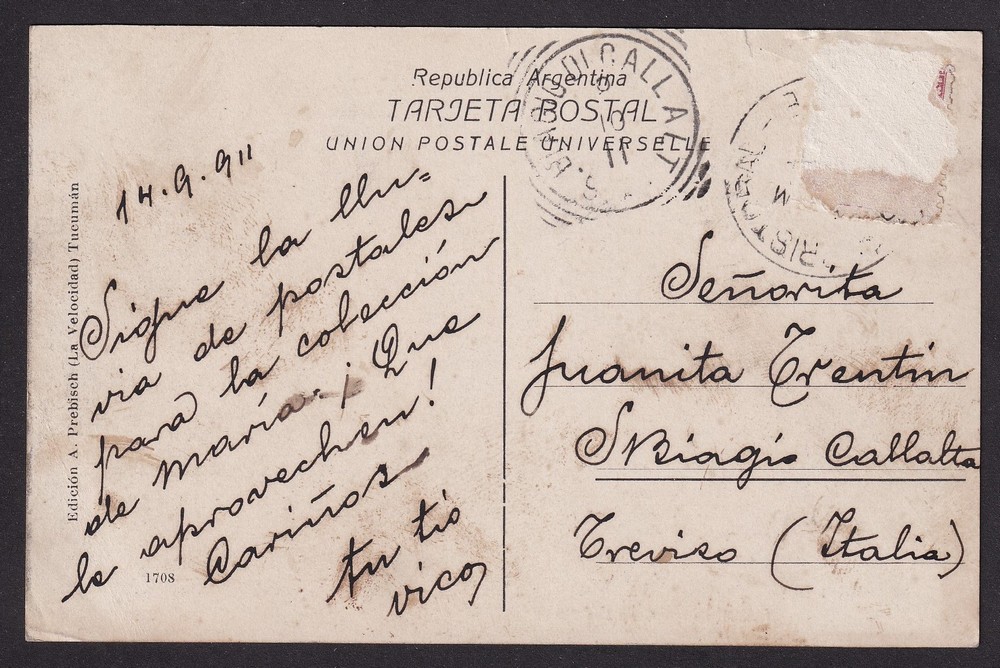 Republica Argentina
TARJETA POSTAL
UNION POSTALE UNIVERSELLE
14.9.911
Sigue la llu=
via de postales
para la colección
de María. ¡Que
la aprovechen!
Cariños
tu tío
vico
Señorita
Juanita Trentin
S Biagio Callalta
Treviso (Italia)
Edición A. Prebisch (La Velocidad) Tucumán
1708
10
11